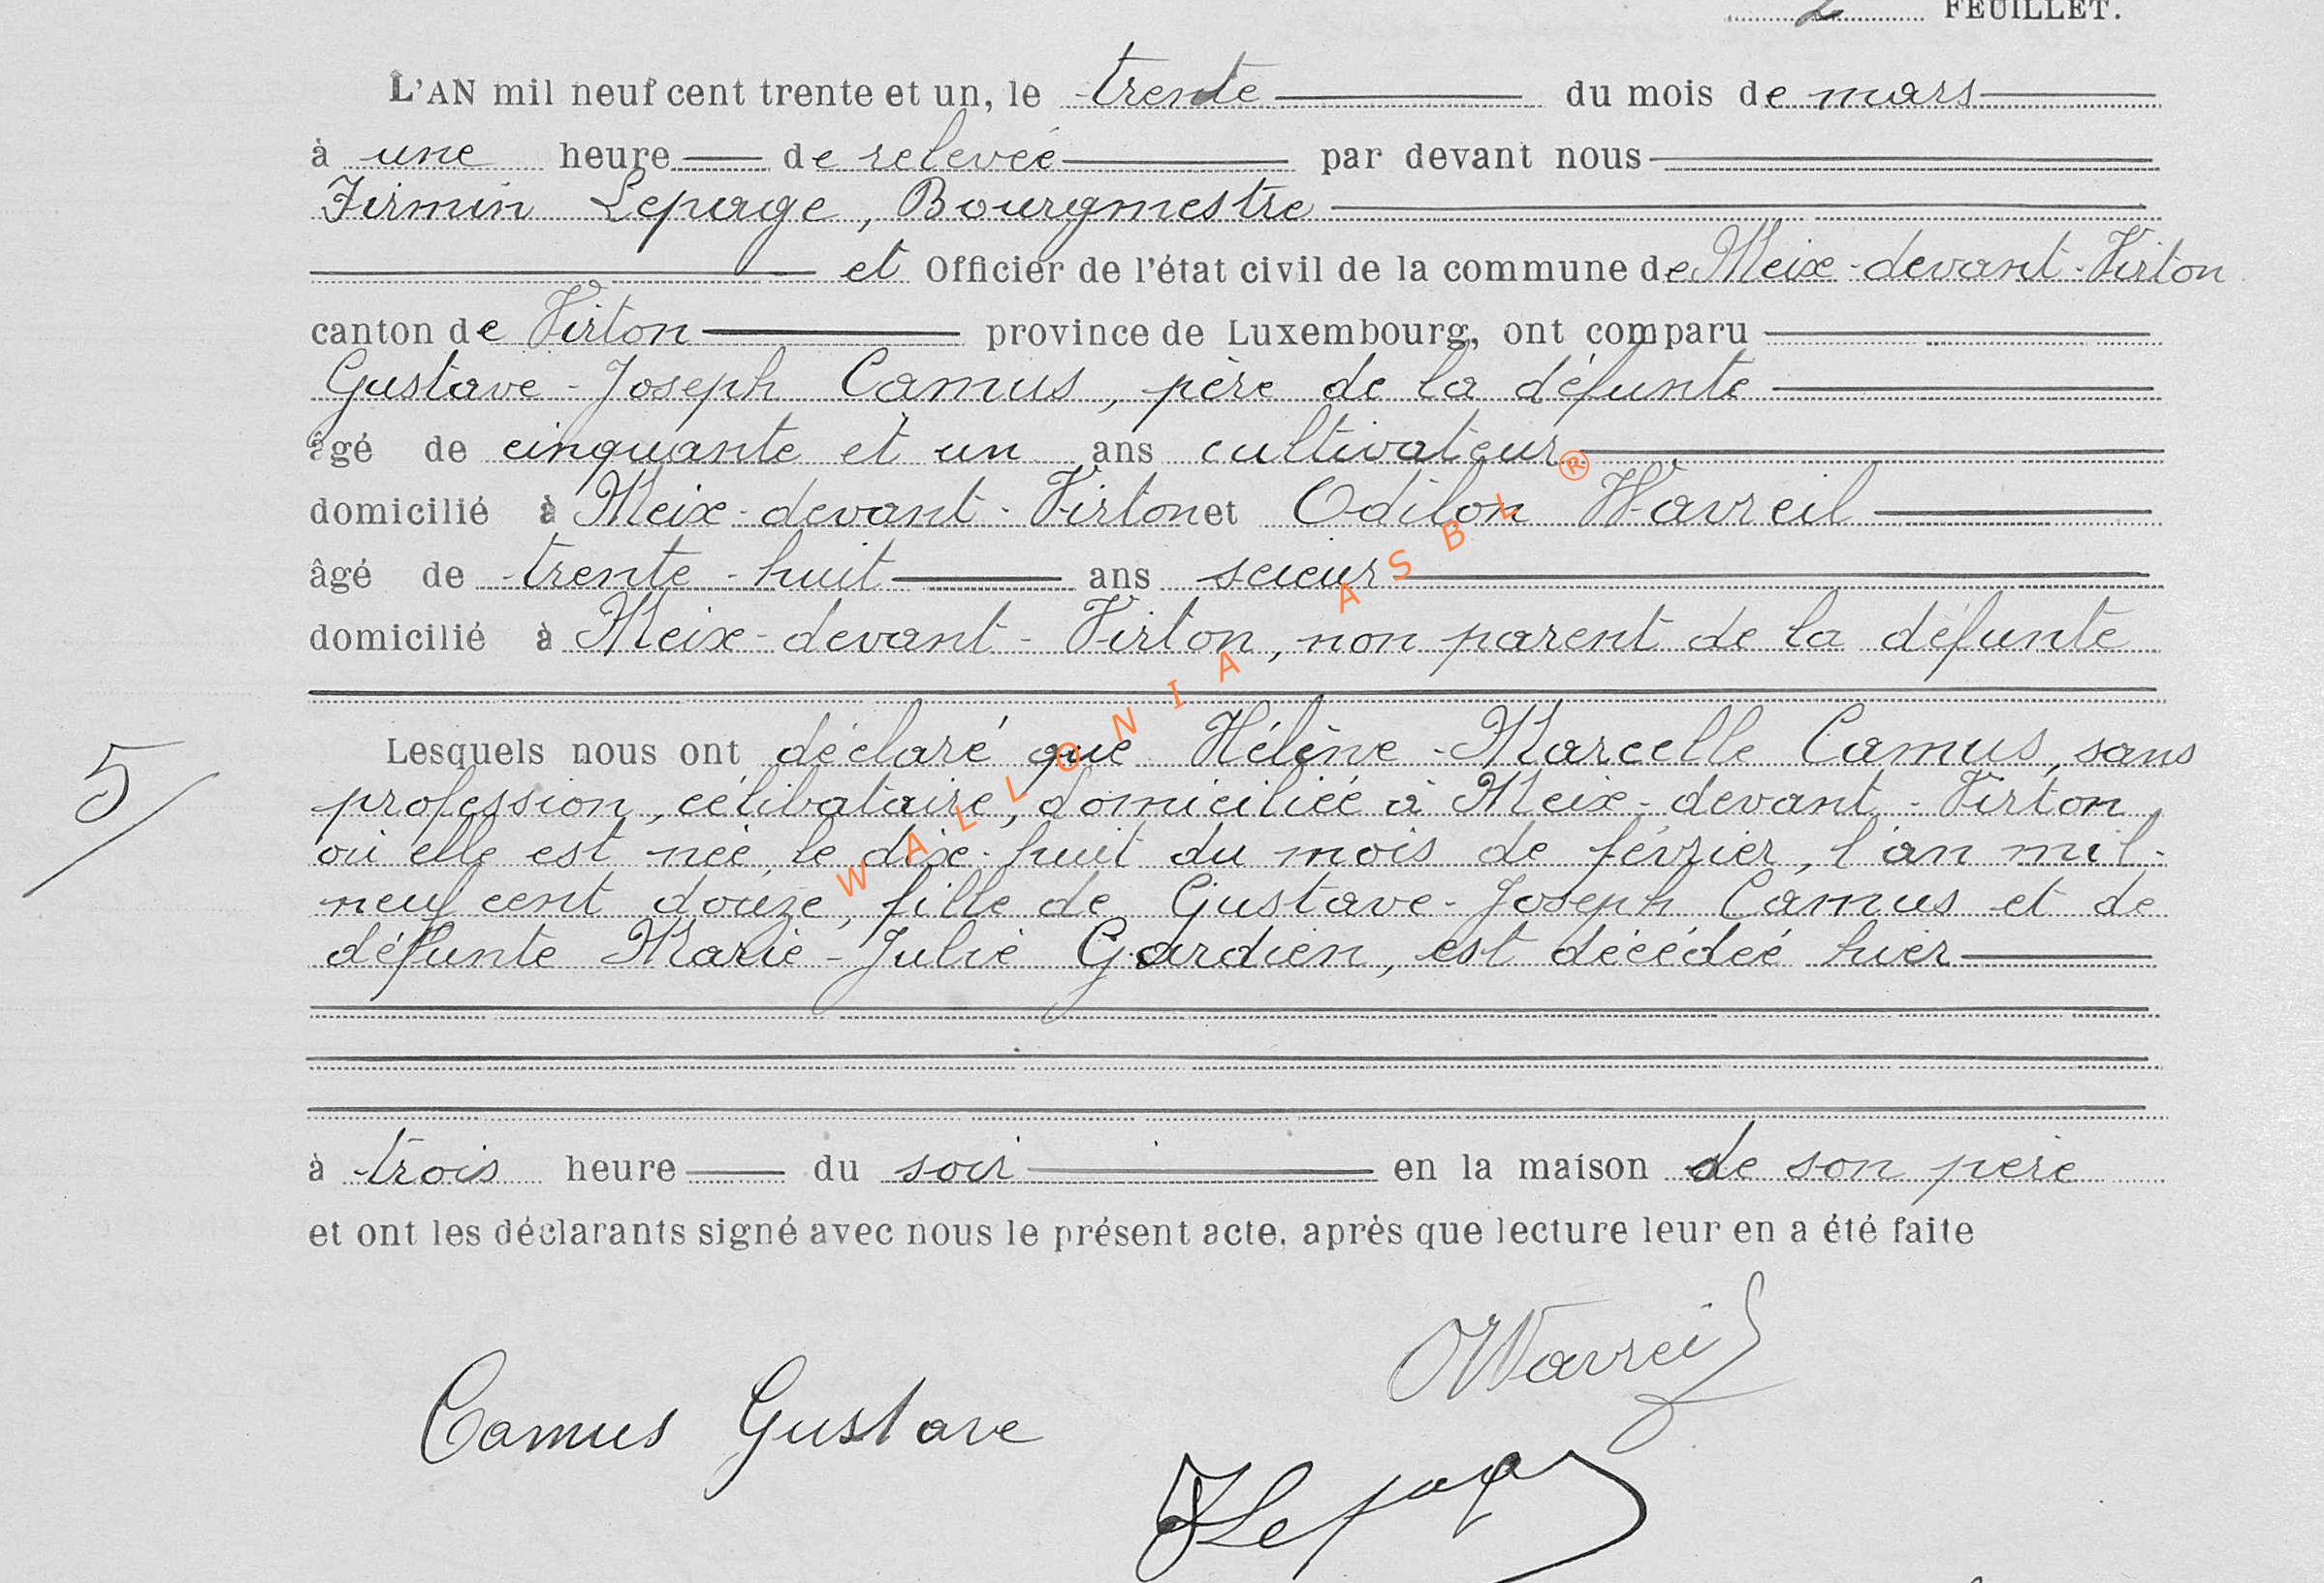 2 FEUILLET.
L'AN mil neuf cent trente et un, le trente du mois de mars
à une heure de relevée par devant nous
Firmin Lepage, Bourgmestre
et Officier de l'état civil de la commune de Meix-devant-Virton
canton de Virton province de Luxembourg, ont comparu
Gustave-Joseph Camus, père de la défunte
âgé de cinquante et un ans cultivateur
domicilié à Meix-devant-Virton et Odilon Wavreil
âgé de trente-huit ans scieur
domicilié à Meix-devant-Virton, non parent de la défunte
5/
Lesquels nous ont déclaré que Hélène-Marcelle Camus, sans
profession, célibataire, domiciliée à Meix-devant-Virton,
où elle est née, le dix-huit du mois de février, l'an mil-
neuf cent douze, fille de Gustave-Joseph Camus et de
défunte Marie-Julie Gardien, est décédée hier
à trois heure du soir en la maison de son père
et ont les déclarants signé avec nous le présent acte, après que lecture leur en a été faite
OWavreil
Camus Gustave
FLepage
WALLONIA ASBL ®